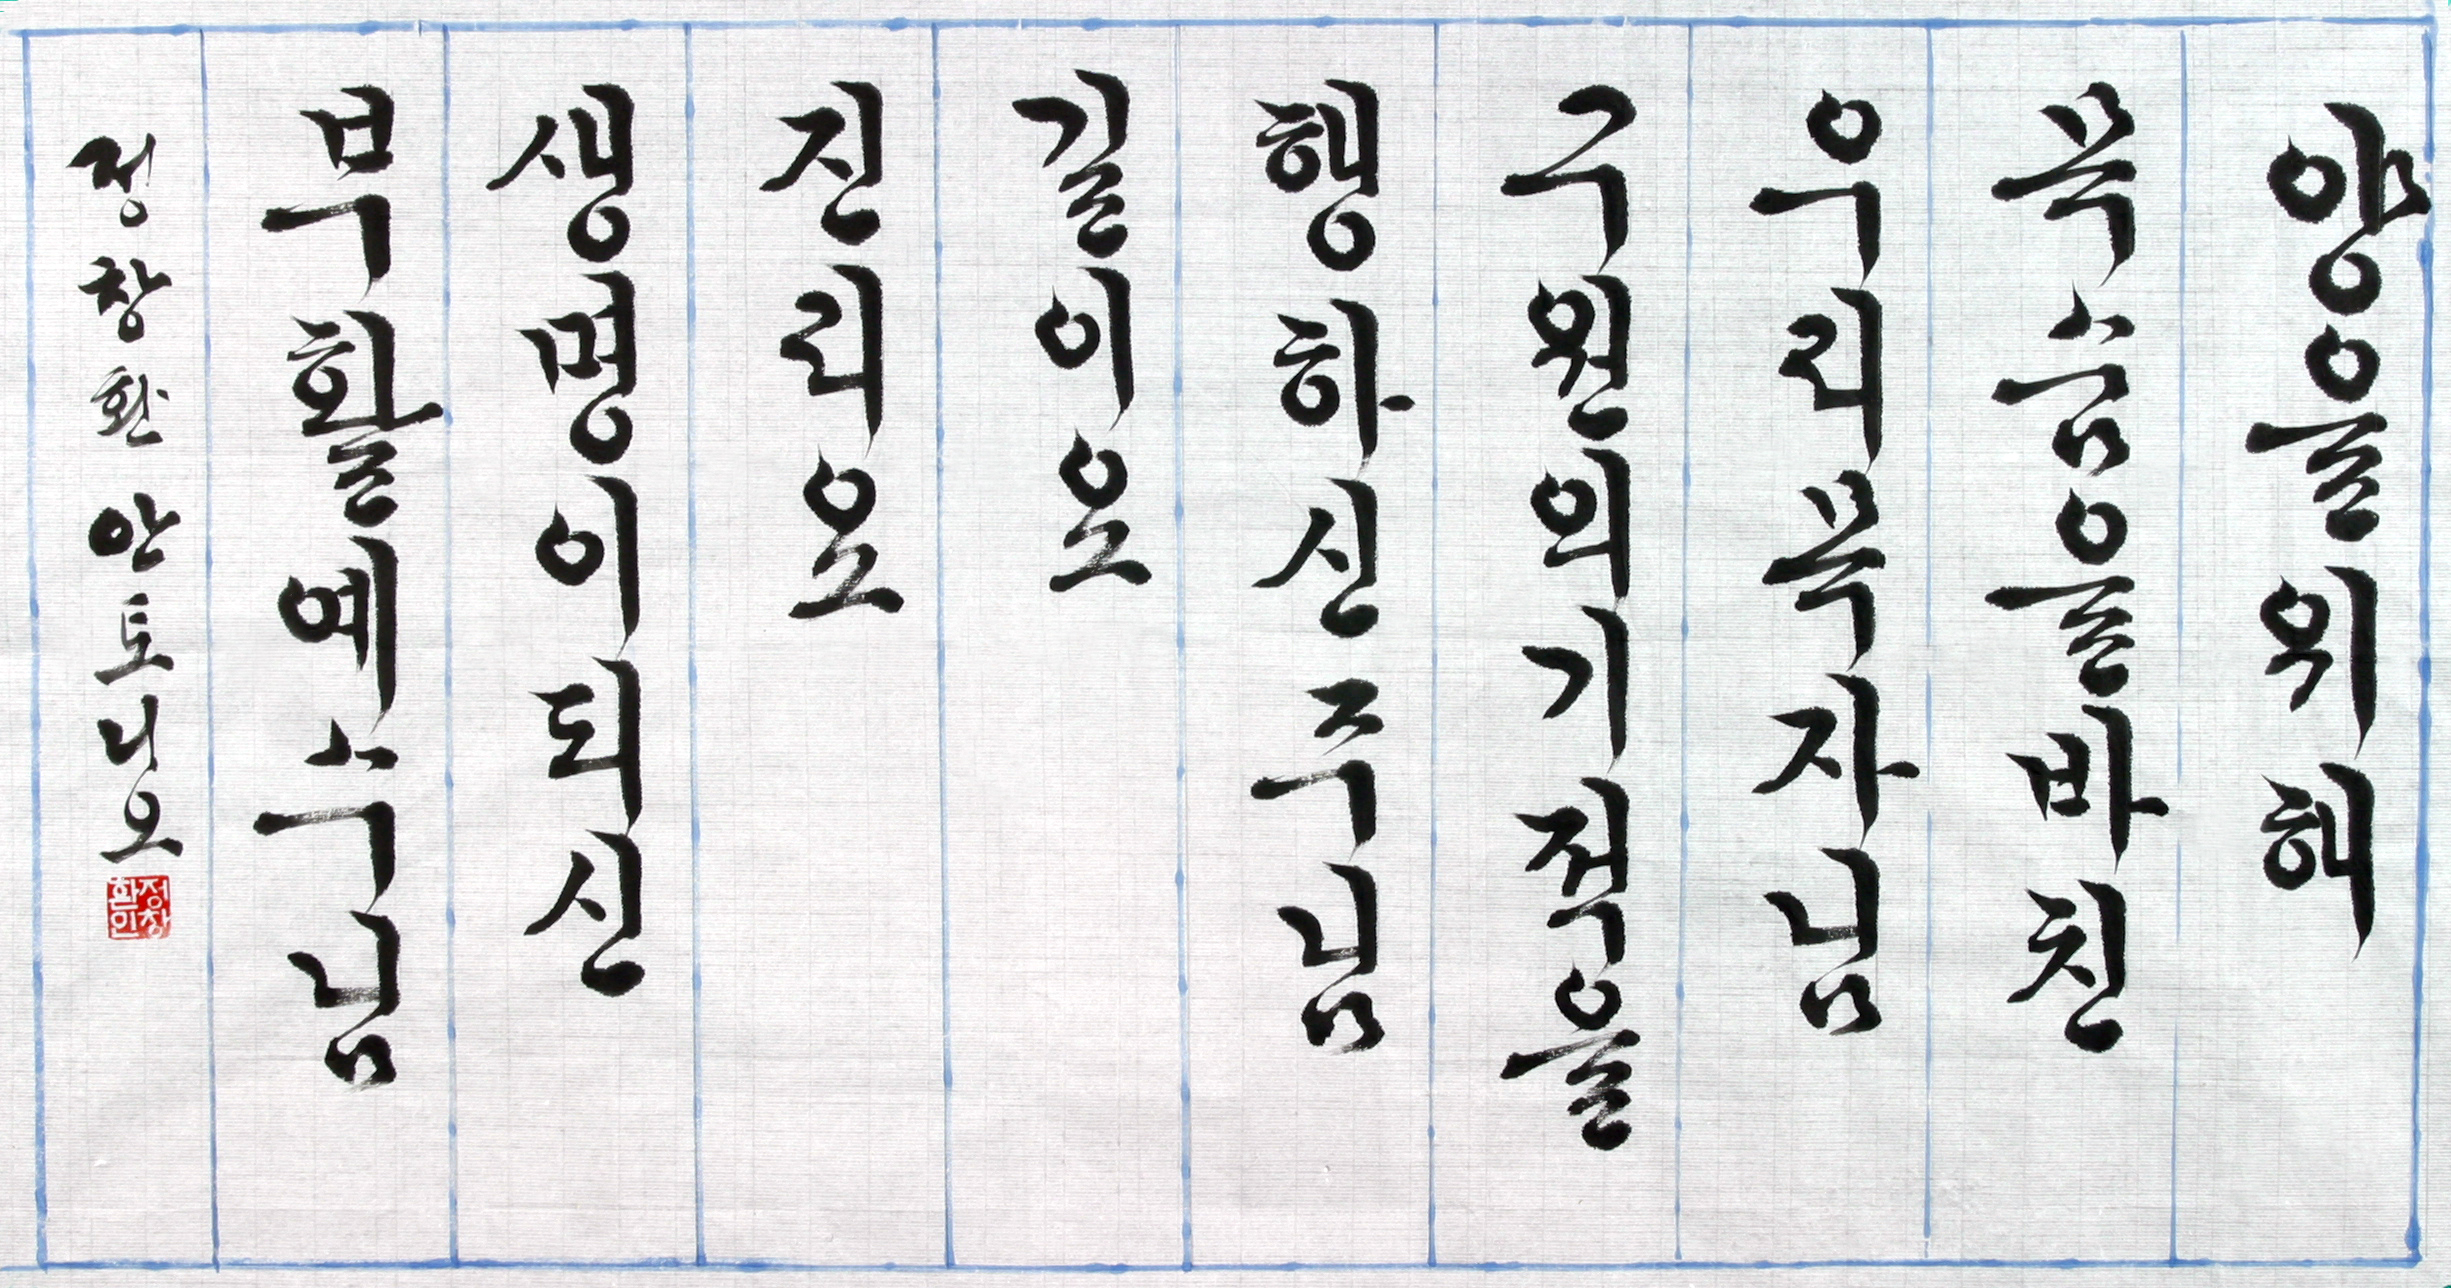 양을위해
목숨을바친
우리목자님
구원의기적을
행하신주님
길이요
진리요
생명이되신
부활예수님
정창환 안토니오
정창환인